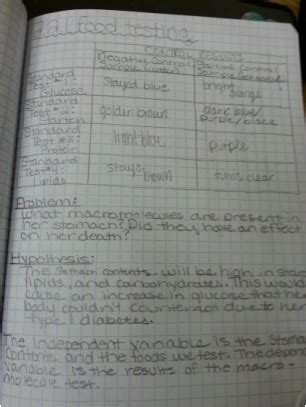 2.2.1 food testing
Control Results
Negative Control Positive Control
Standard Test #1: Glucose Stayd blue bright orange
Standard Test #2: Starch golden brown dark blue/ purple/black
Standard Test #3: Protein light blue purple
Standard Test #4: Lipids stays brown turns clear
Problem:
What macromolecules are present in
her stomach? Did they have an effect
on her death?
Hypothesis:
The stomach contents will be high in starch
lipids, and carbohydrates. This would
cause an increase in glucose that her
body couldn't counteract due to her
type 1 diabetes.
The independent variable is the stomach
contents and the foods we test. The dependent
variable is the results of the macro-
molecule test.